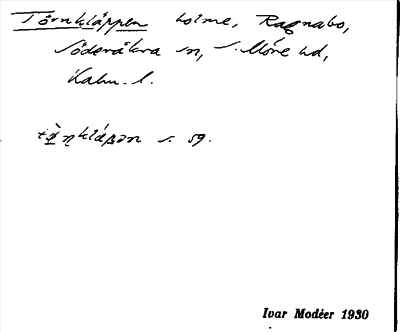 Törnkläppen holme, Ragnabo,
Söderåkra sn, S. Möre hd,
Kalm. l.
s. 59.
Ivar Modéer 1930